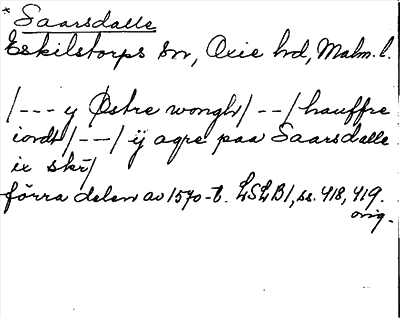 * Saarsdalle
Eskilstorps sn, Oxie hd, Malm. l.
/--- y Østre wongh/--/hauffre
iordt/--/ ij agre paa Saarsdalle
ix skr/
förra delen av 1570-t. LSLB1, ss. 418, 419.
orig.